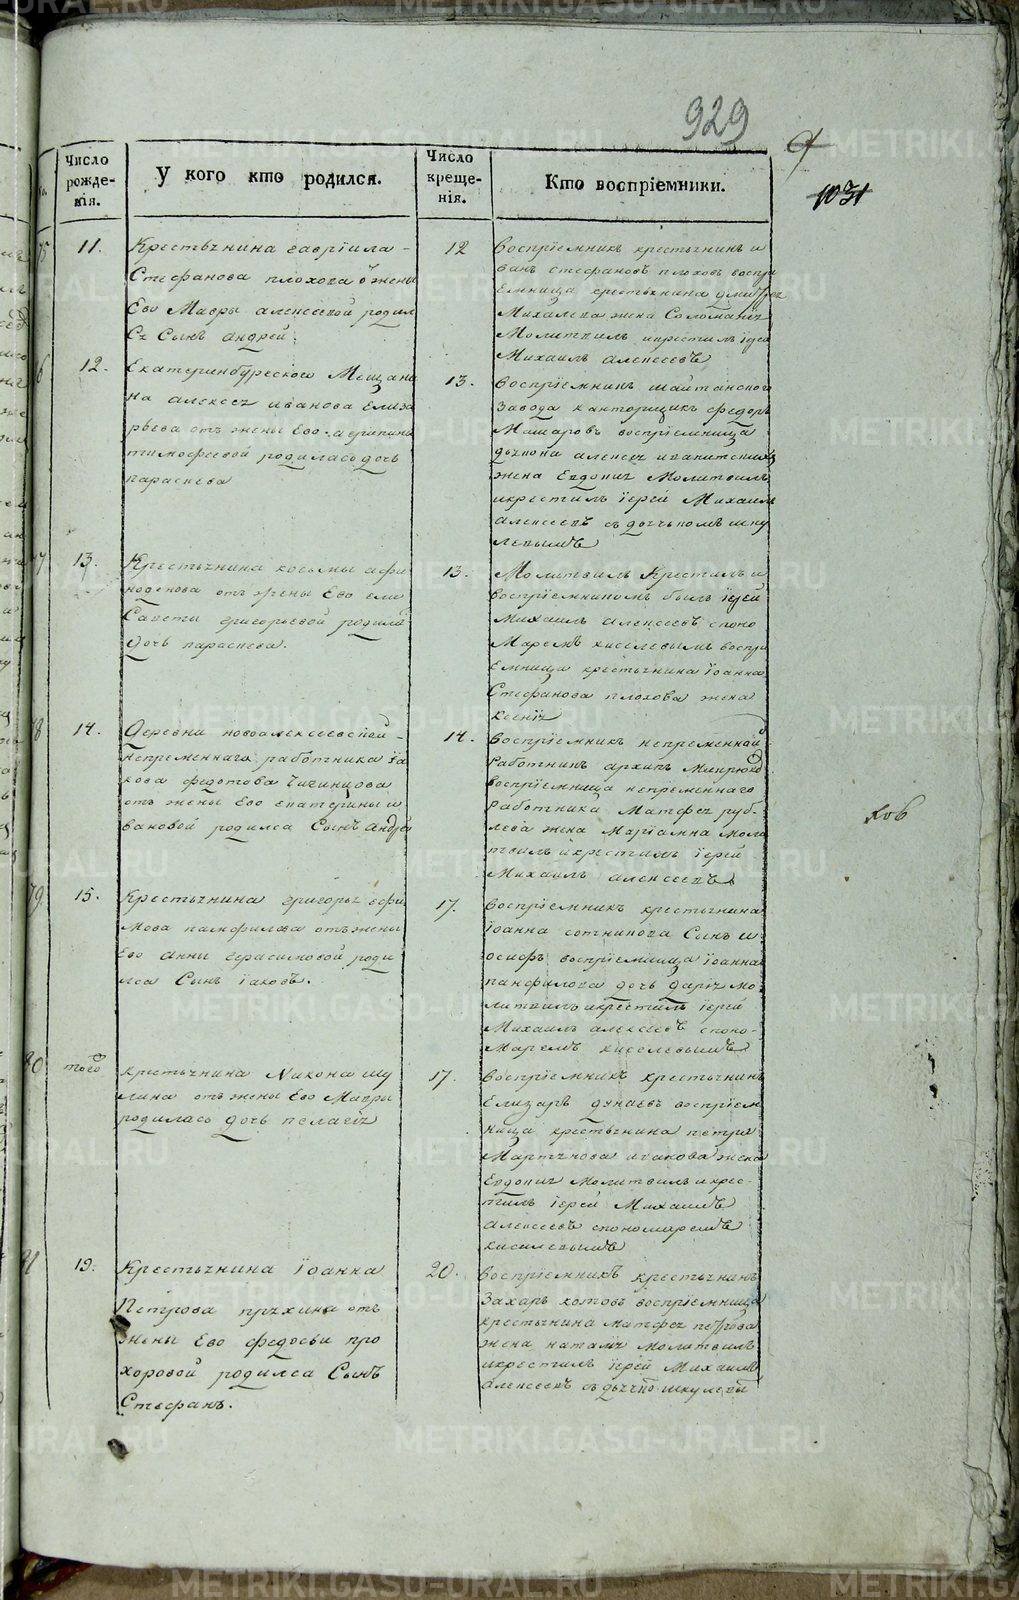 929
1031
№.
Число рожде-нія.
У кого кто родился.
Число креще-нія.
Кто воспріемники.
75
11.
Крестьянина гавріила
Стефанова плохова отъ жены
Ево Мавры алексеевой родил
ся Сынъ андрей.
12
воспріемникъ крестьянинъ и
ванъ стефановъ плоховъ воспрі
емница крестьянина дмитрея
Михалева жена Соломанея
Молитвилъ икрестилъ іерей
Михаилъ алексеевъ
76
12.
Екатеринбургского Мещани
на алексея иванова Елиза
рьева отъ жены Ево агрипины
тимофеевой родиласъ дочь
параскева
13.
воспріемникъ шайтанского
завода канторщикъ федоръ
Машаровъ воспріемница
дьячкова алексея
жена Евдокия Молитвилъ
икрестилъ іерей Михаилъ
алексеевъ съ дьячькомъ шку
левымъ
77
13.
Крестьянина косьмы афи
ногенова отъ жены Ево ели
Саветы григорьевой родила
дочь параскева.
13.
Молитвилъ Крестилъ и
воспріемникомъ былъ іерей
Михаилъ алексеевъ споно
Маремъ киселевымъ воспрі
емница крестьянина іоанна
Стефанова плохова жена
ксенія
78
14.
Деревни новоалексеевской
непременнаго работника іа
кова федотова Чиченцова
отъ жены Ево екатерины и
вановой родился Сынъ андрей
14.
воспріемникъ непременной
работникъ архипъ
воспріемница непременнаго
работника Матфея руб-
лева жена Маріамна моли
твилъ икрестилъ іерей
Михаилъ алексеевъ
ков
79
15.
Крестьянина григорья ефи
мова панфилова отъ жены
Ево анны герасимовой роди
лся Сынъ іаковъ.
17.
воспріемникъ крестьянина
іоанна сотникова Сынъ и
осифъ воспріемница іоанна
панфилова дочь дарія мо-
литвилъ икрестилъ іерей
Михаилъ алексеевъ споно-
Маремъ киселевымъ
80
того
крестьянина Никона шу
лина отъ жены Ево Мавры
родилась дочь пелагія
17.
воспріемникъ крестьянинъ
Елизаръ дунаевъ воспріем
ница крестьянина петра
Мартынова жена
Евдокия Молитвилъ икрес-
тилъ іерей Михаилъ
алексеевъ спономаремъ
киселевымъ
81
19.
Крестьянина іоанна
Петрова пряхина отъ
жены Ево федосьи про
хоровой родился Сынъ
Стефанъ.
20.
воспріемникъ крестьянинъ
Захаръ котовъ воспріемница
крестьянина матфея петрова
жена наталія молитвилъ
икрестилъ іерей Михаилъ
алексеевъ съ дьячко шкулевы
METRIKI.GASO-URAL.RU